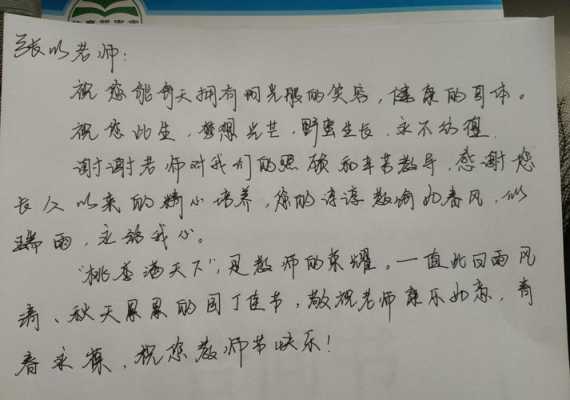 张以老师：
祝您能每天拥有阳光般的笑容，健康的身体。
祝您此生，梦想光芒，野蛮生长，永不彷徨
谢谢老师对我们的照顾和辛苦教导，感谢您
长久以来的精心培养，您的谆谆教诲如春风，似
瑞雨，永铭我心。
“桃李满天下”，是教师的荣耀。一直此日雨风
清、秋天累累的园丁佳节，敬祝老师康乐如意，青
春永葆，祝您教师节快乐！